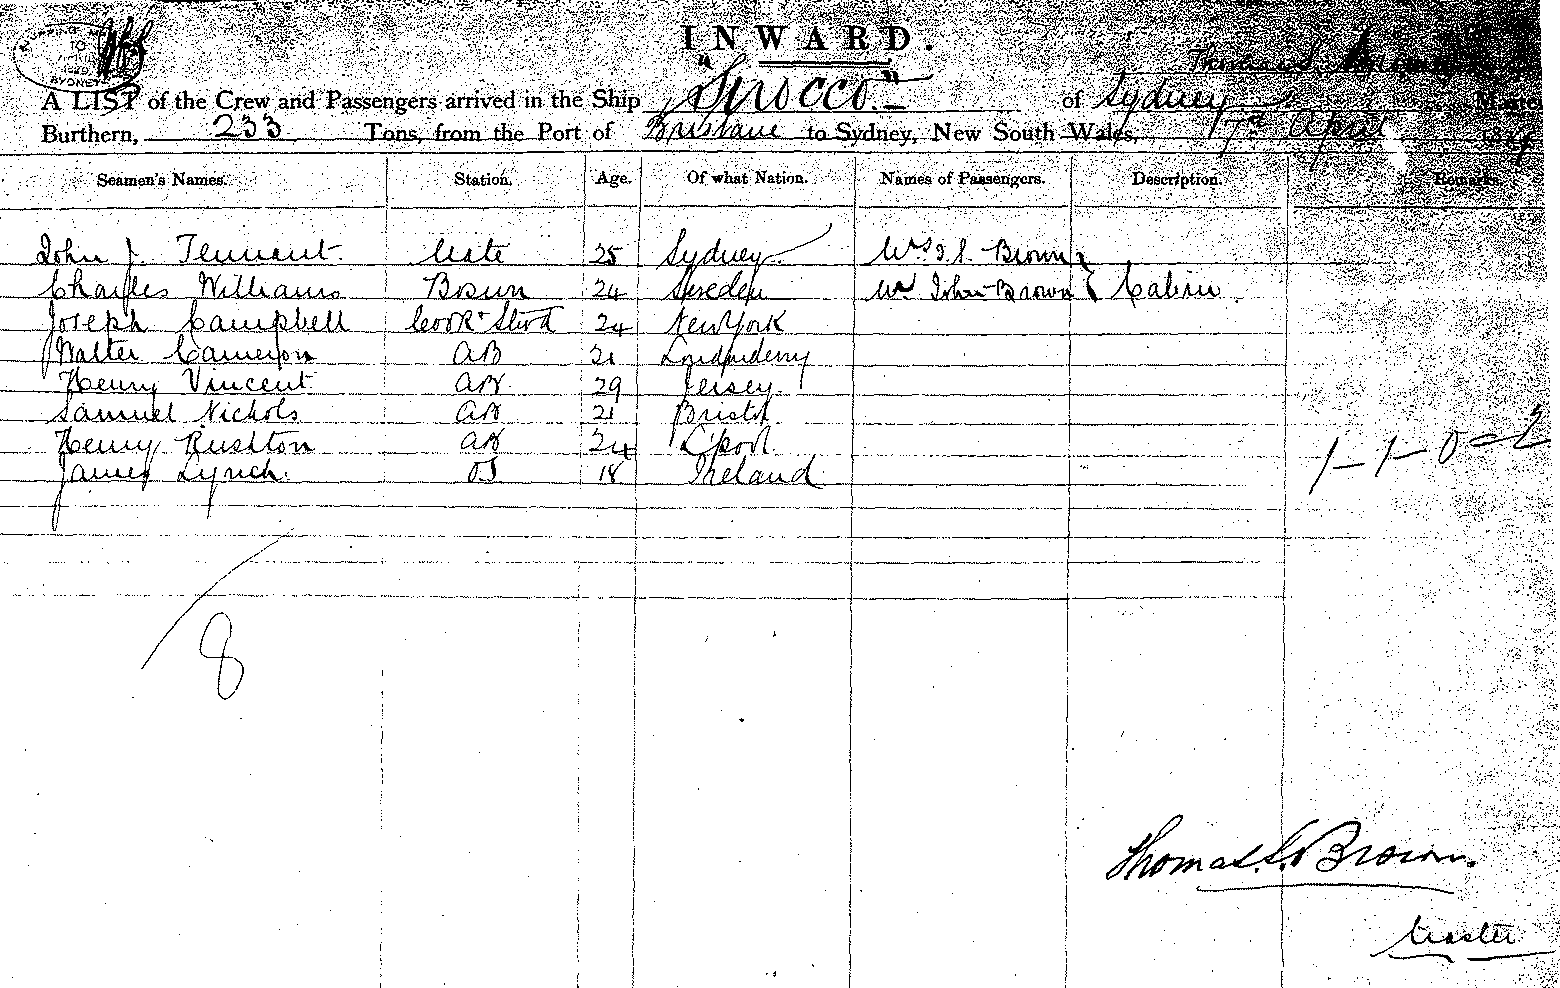 SHIPPING MASTER
TO
SYDNEY
INWARD.
Thomas S. Brown
A LIST of the Crew and Passengers arrived in the Ship "Sirocco." of Sydney Master
Burthern, 233 Tons, from the Port of Brisbane to Sydney, New South Wales, 17th April
Seamen's Names. Station. Age. Of what Nation. Names of Passengers. Description. Remarks.
John J. Tennant. Mate 25 Sydney Mrs T. S. Brown
Charles Williams Bosun 24 Sweden Mr John Brown Cabin.
Joseph Campbell Cook & Stwd 24 New York
Walter Cameron AB 21 Londonderry
Henry Vincent AB 29 Jersey
Samuel Nichols AB 21 Bristol
Henry Rushton AB 24 L'pool
James Lynch. OS 18 Ireland
8
Thomas. S. Brown.
Master